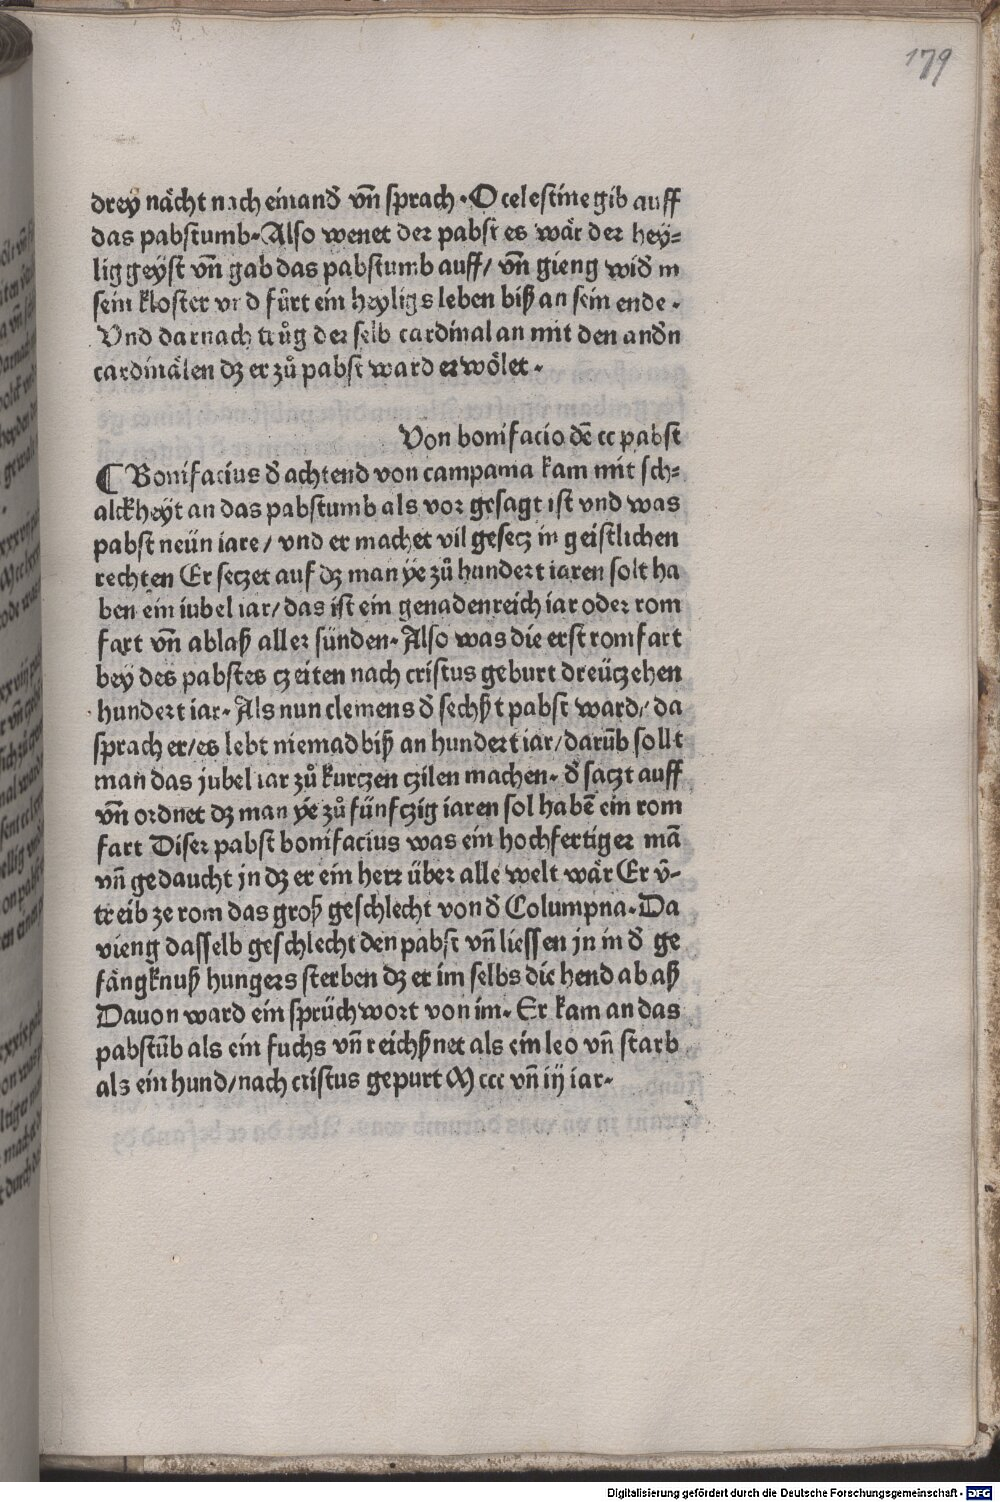 179
drey nächt nach einand̄ vn̄ sprach · O celestine gib auff
das pabstumb · Also wenet der pabst es wär der hey⸗
lig geyst vn̄ gab das pabstumb auff / vn̄ gieng wid̄ in
sein kloster vnd fůrt ein heyligs leben biß an sein ende ·
Vnd darnach trůg der selb cardinal an mit den andn̄
cardinälen dz er zů pabst ward erwölet ·
Von bonifacio dē cc pabst
¶ Bonifacius d̄ achtend von campania kam mit sch⸗
alckheyt an das pabstumb als vor gesagt ist vnd was
pabst neün iare / vnd er machet vil gesecz in geistlichen
rechten Er seczet auf dz man ye zů hundert iaren solt ha
ben ein iubel iar / das ist ein genadenreich iar oder rom
fart vn̄ ablaß aller sünden · Also was die erst romfart
bey des pabstes czeiten nach cristus geburt dreüczehen
hundert iar · Als nun clemens d̄ sechßt pabst ward / da
sprach er / es lebt niemad biß an hundert iar / darūb sollt
man das jubel iar zů kurczen czilen machen · d̄ saczt auff
vn̄ ordnet dz man ye zů fünfczig iaren sol habē ein rom
fart Diser pabst bonifacius was ein hochfertiger mā
vn̄ gedaucht jn dz er ein herr über alle welt wär Er v̄-
treib ze rom das groß geschlecht von d̄ Columpna · Da
vieng dasselb geschlecht den pabst vn̄ liessen jn in d̄ ge
fängknuß hungers sterben dz er im selbs die hend ab aß
Dauon ward ein sprüchwort von im · Er kam an das
pabstūb als ein fuchs vn̄ reichßnet als ein leo vn̄ starb
als ein hund / nach cristus gepurt M ccc vn̄ iij iar ·
Digitalisierung gefördert durch die Deutsche Forschungsgemeinschaft - DFG